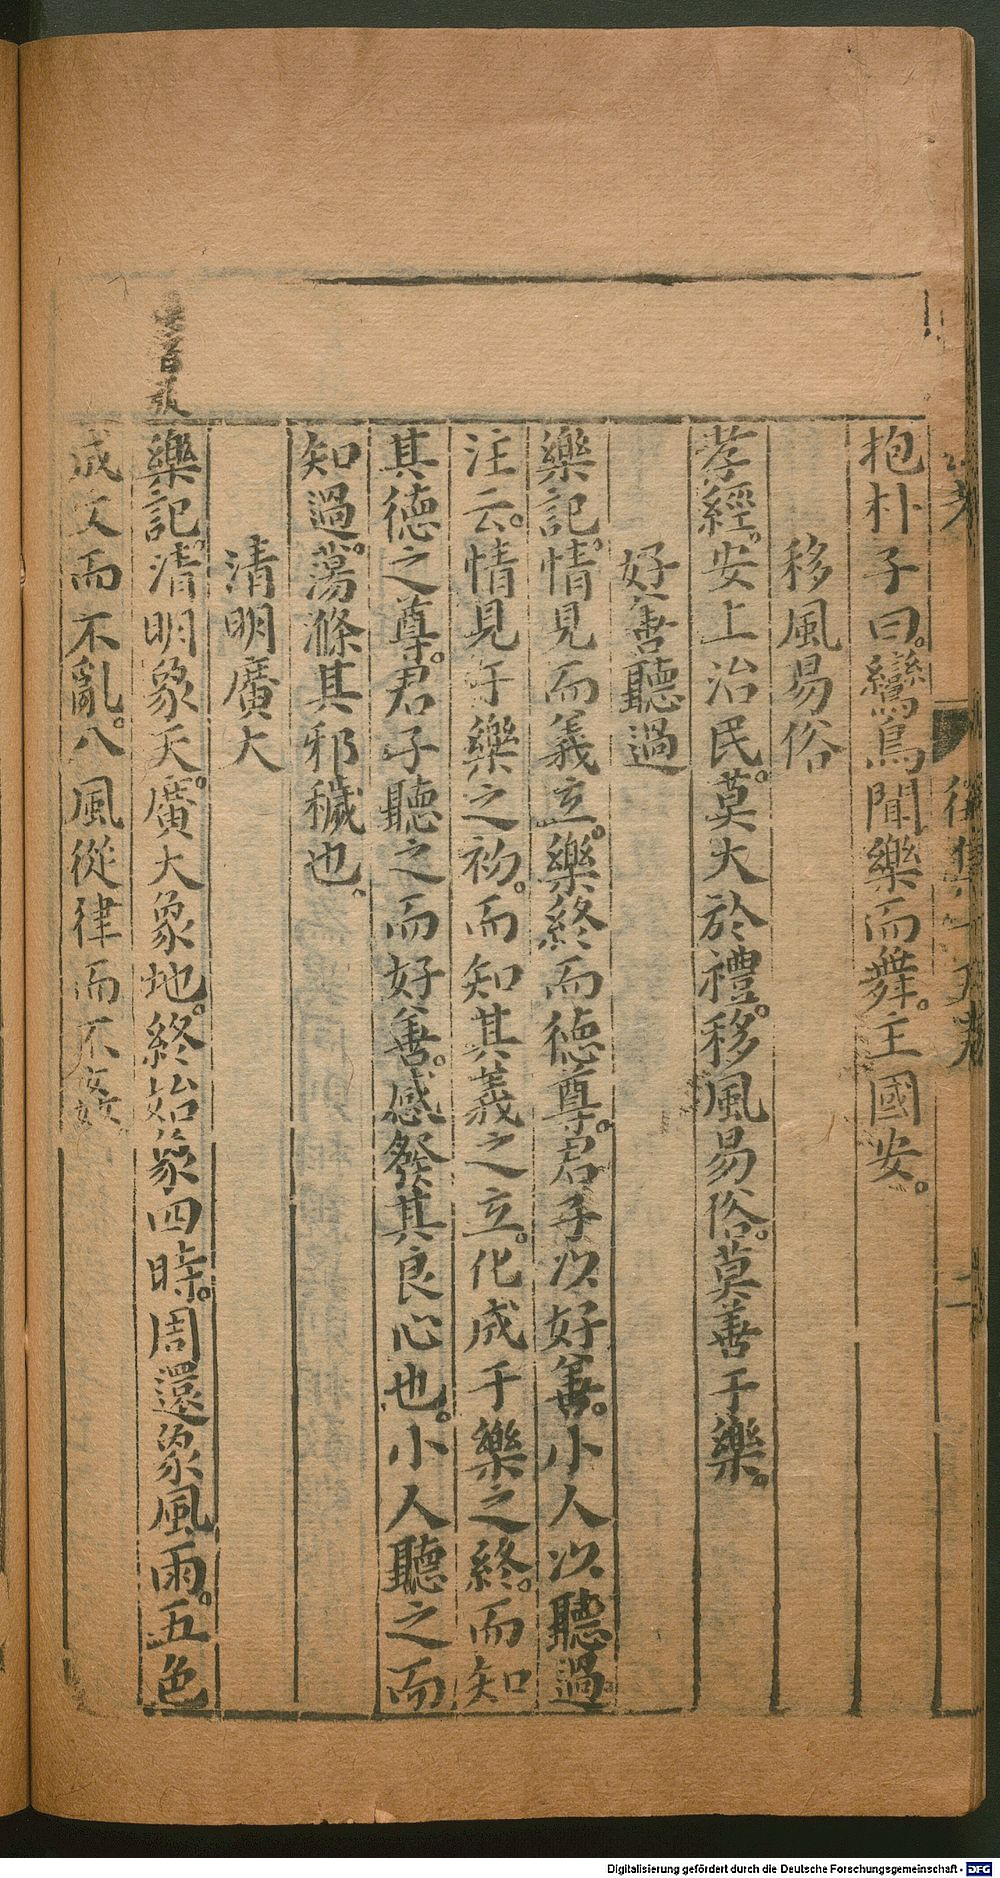 抱朴子曰。鸞鳥聞樂而舞。主國安。
移風易俗
孝經。安上治民。莫大於禮。移風易俗。莫善于樂。
好善聽過
樂記。情見而義立。樂終而德尊。君子以好善。小人以聽過
注云。情見于樂之初。而知其義之立。化成于樂之終。而知
其德之尊。君子聽之而好善。感發其良心也。小人聽之而
知過。蕩滌其邪穢也。
清明廣大
樂記。清明象天。廣大象地。終始象四時。周還象風雨。五色
成文而不亂。八風從律而不姦
Digitalisierung gefördert durch die Deutsche Forschungsgemeinschaft - DFG